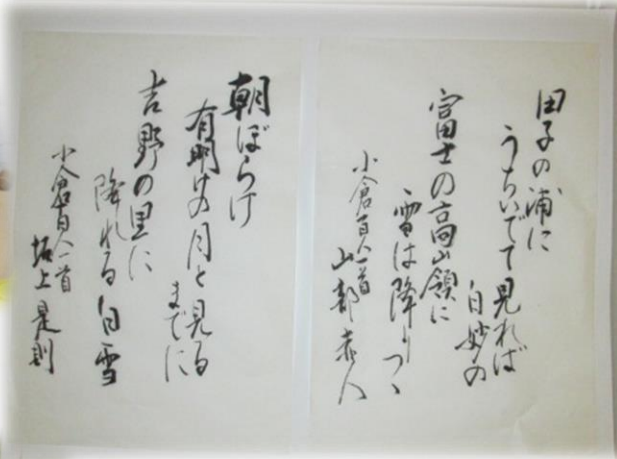 田子の浦に
うちいでて見れば
白妙の
富士の高嶺に
雪は降りつゝ
小倉百人一首
山部赤人
朝ぼらけ
有明けの月と見る
までに
吉野の里に
降れる白雪
小倉百人一首
坂上是則